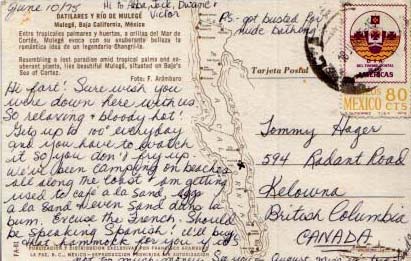 June 10/75
Hi to
Victor
DATILARES Y RÍO DE MULEGÉ
Mulegé, Baja California, México
Entre tropicales palmeras y huertas, a orillas del Mar de
Cortés, Mulegé evoca con su exuberante belleza la
romántica idea de un legendario Shangri-la.
Resembling a lost paradise amid tropical palms and exuberant
plants, lies beautiful Mulegé, situated on Baja's
Sea of Cortez.
Foto: F. Arámburo
PS: got busted for
nude bathing
Tarjeta Postal
AMERICAS
MEXICO 80
CTS
Hi fart! Sure wish you
were down here with us.
So relaxing & bloody hot!
Gets up to 100° everyday
and you have to watch
it so you don't fry up.
We've been camping on beaches
all along the coast & am getting
used to cafe a la sand, eggs
a la sand & even sand a la
bum. Excuse the French. Should
be speaking Spanish! Will buy
a hammock for you if it's
not too much money. See you
Tommy Hager
594 Radant Road
Kelowna
British Columbia
CANADA